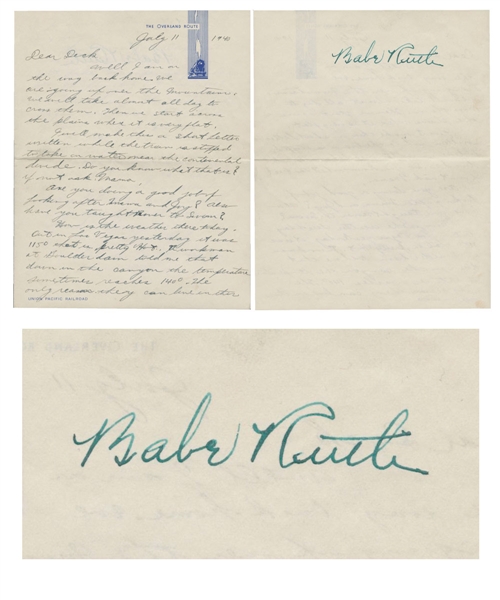 THE OVERLAND ROUTE
July 11 1941
Dear Dick
Well I am on
the way back home. We
are going up over the Mountains.
We will take almost all day to
cross them. Then we start across
the plains where it is very flat.
I will make this a short letter
written while the train is stopped
to take on water near the continental
divide. Do you know what that is?
If not ask Mama.
Are you doing a good job of
looking after Mama and Joy? Also
have you taught to swim?
How is the weather there today.
Out in Las Vegas yesterday it was
115° that is pretty Hot. A workman
at Boulder dam told me that
down in the canyon the temperature
sometimes reaches 140°. The
only reason they can live in this
UNION PACIFIC RAILROAD
Babe Ruth
Babe Ruth